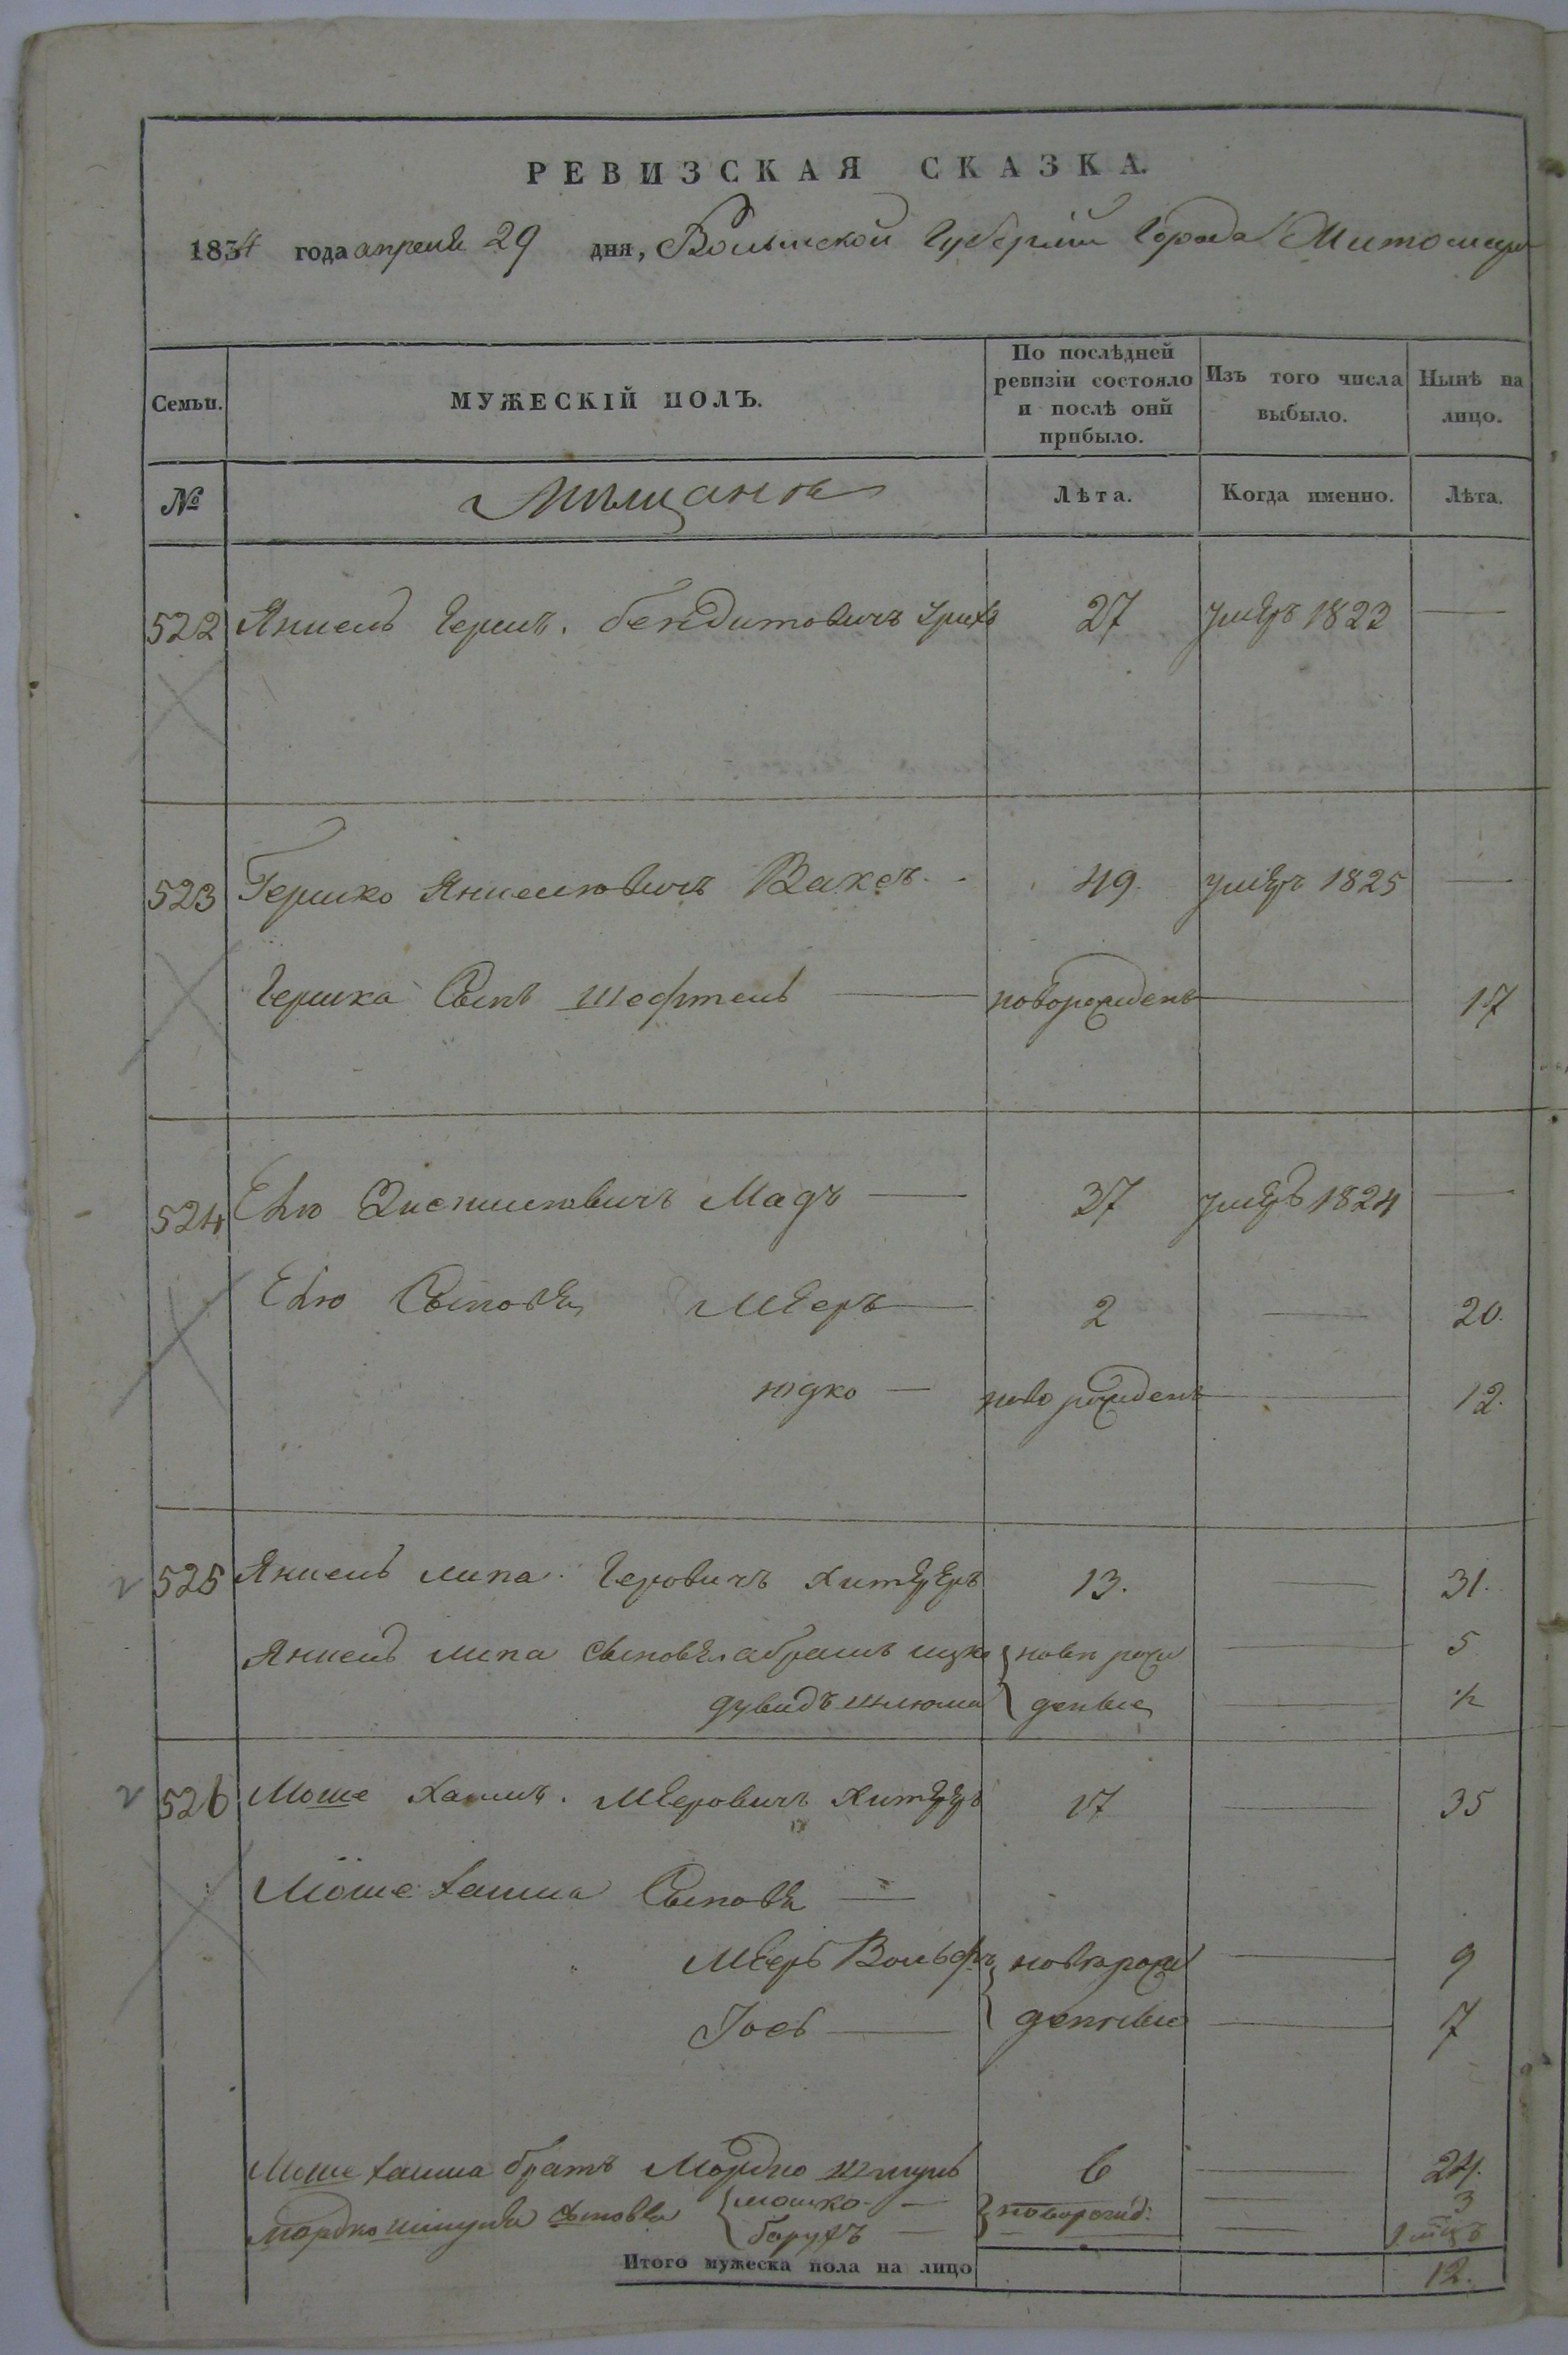 РЕВИЗСКАЯ СКАЗКА.
1834 года апреля 29 дня, Волынской Губернiи Города Житомира
Семьи.
МУЖЕСКІЙ ПОЛЪ.
По послѣдней ревизіи состояло и послѣ оной прибыло.
Изъ того числа выбыло.
Нынѣ на лицо.
№
Мѣщанъ
Лѣта.
Когда именно.
Лѣта.
522 Янкель Гершъ. Бендитовичъ 27 умеръ 1823 —
523 Гершко Янкелювичъ Ваксъ. 49. умеръ 1825 —
Гершка Сынъ Шефтель — новорожденъ — 17
524 Мадъ — 37 умеръ 1824 —
Сыновья Мееръ — 2 — 20.
Юдко — ново рожденъ — 12.
525 Янкель Липа. Геровичъ 13. — 31.
Янкель Липа сыновья абрамъ ицко { ново рож — 5
дувидъ шлюма { денные — ½
526 Моше Хаимъ. Мееровичъ 17 — 35
Моше Хаима Сыновья —
Мееръ Вольфъ { новорож — 9
Іосъ — { денные — 7
Моше Хаима братъ Мордко Шмуль 6 — 24.
Мордко шмуля сыновья { мошко — } новорожд: — 3
{ барухъ — — 1 мцъ
Итого мужеска пола на лицо 12.